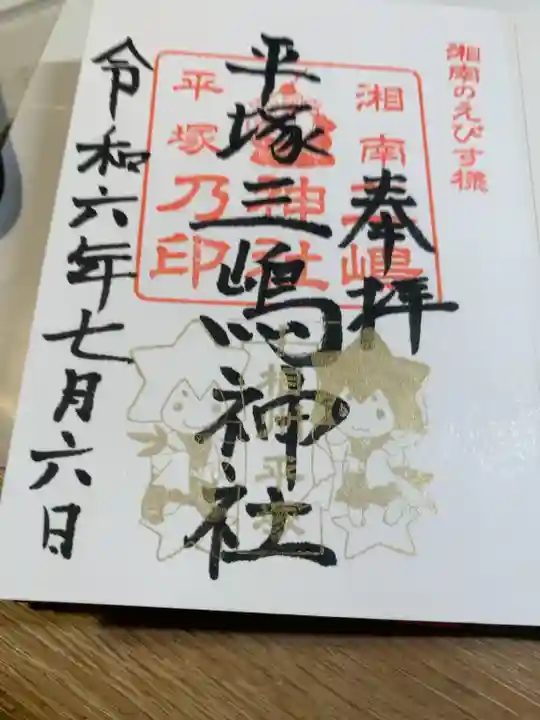 湘南のえびす様
奉拝
湘南三嶋
神社
平塚乃印
平塚三嶋神社
令和六年七月六日